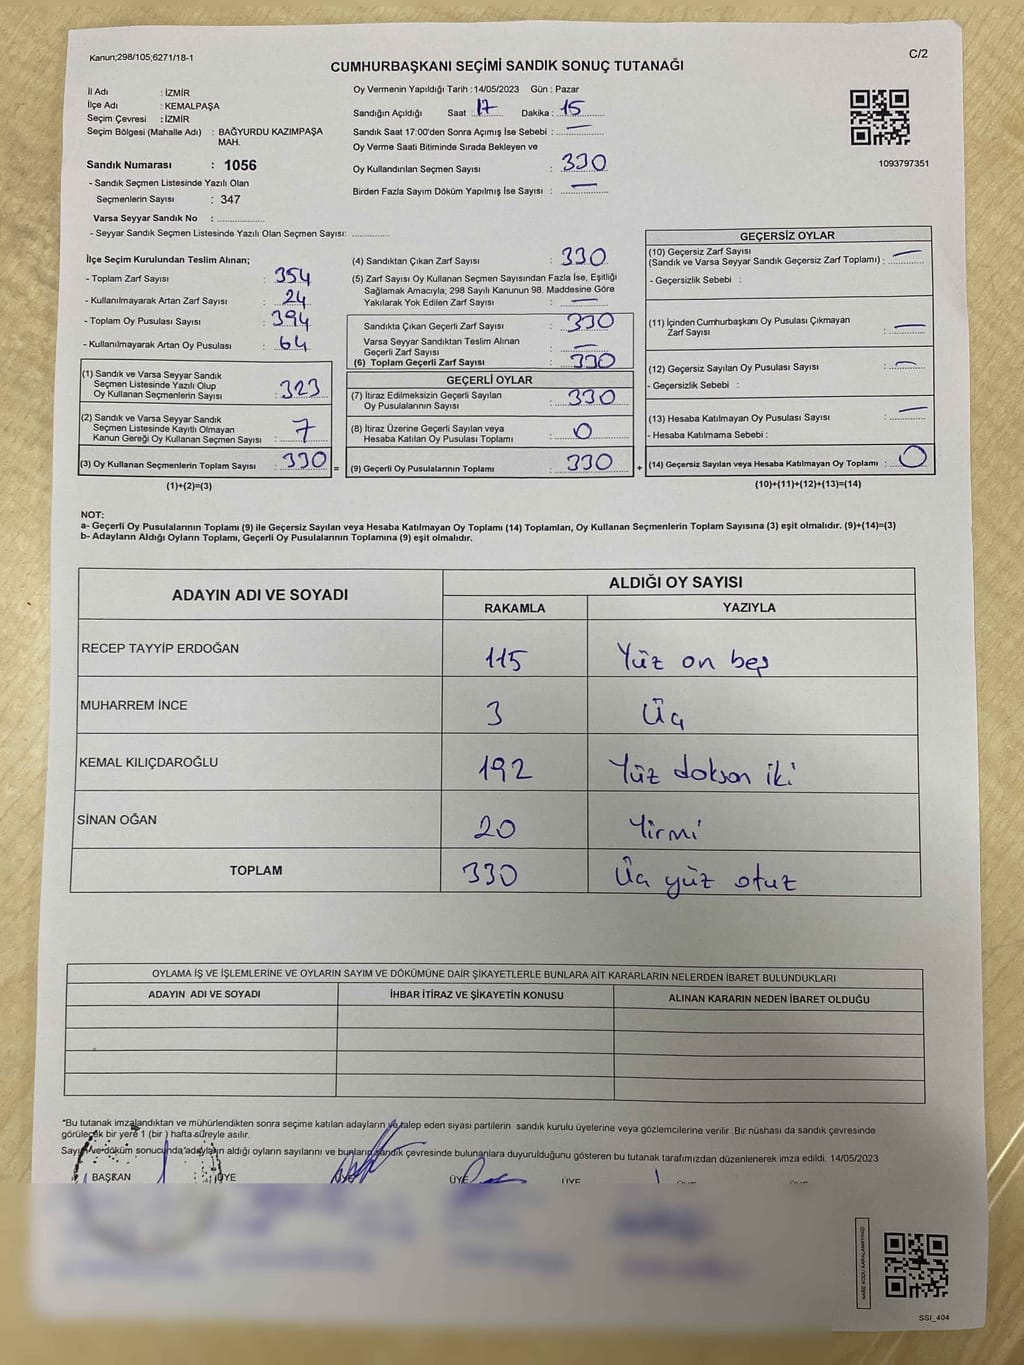 Kanun;298/105;6271/18-1
C/2
CUMHURBAŞKANI SEÇİMİ SANDIK SONUÇ TUTANAĞI
İl Adı : İZMİR
İlçe Adı : KEMALPAŞA
Seçim Çevresi : İZMİR
Seçim Bölgesi (Mahalle Adı) : BAĞYURDU KAZIMPAŞA
MAH.
Sandık Numarası : 1056
- Sandık Seçmen Listesinde Yazılı Olan
Seçmenlerin Sayısı : 347
Varsa Seyyar Sandık No :
- Seyyar Sandık Seçmen Listesinde Yazılı Olan Seçmen Sayısı:
Oy Vermenin Yapıldığı Tarih : 14/05/2023 Gün : Pazar
Sandığın Açıldığı Saat : 17 Dakika : 15
Sandık Saat 17:00'den Sonra Açımış İse Sebebi : —
Oy Verme Saati Bitiminde Sırada Bekleyen ve
Oy Kullandırılan Seçmen Sayısı : 330
Birden Fazla Sayım Döküm Yapılmış İse Sayısı : —
1093797351
İlçe Seçim Kurulundan Teslim Alınan;
- Toplam Zarf Sayısı : 354
- Kullanılmayarak Artan Zarf Sayısı : 24
- Toplam Oy Pusulası Sayısı : 394
- Kullanılmayarak Artan Oy Pusulası : 64
(1) Sandık ve Varsa Seyyar Sandık
Seçmen Listesinde Yazılı Olup
Oy Kullanan Seçmenlerin Sayısı : 323
(2) Sandık ve Varsa Seyyar Sandık
Seçmen Listesinde Kayıtlı Olmayan
Kanun Gereği Oy Kullanan Seçmen Sayısı : 7
(3) Oy Kullanan Seçmenlerin Toplam Sayısı : 330 =
(1)+(2)=(3)
(4) Sandıktan Çıkan Zarf Sayısı : 330
(5) Zarf Sayısı Oy Kullanan Seçmen Sayısından Fazla İse, Eşitliği
Sağlamak Amacıyla; 298 Sayılı Kanunun 98. Maddesine Göre
Yakılarak Yok Edilen Zarf Sayısı : —
Sandıkta Çıkan Geçerli Zarf Sayısı : 330
Varsa Seyyar Sandıktan Teslim Alınan
Geçerli Zarf Sayısı : —
(6) Toplam Geçerli Zarf Sayısı : 330
GEÇERLİ OYLAR
(7) İtiraz Edilmeksizin Geçerli Sayılan
Oy Pusulalarının Sayısı : 330
(8) İtiraz Üzerine Geçerli Sayılan veya
Hesaba Katılan Oy Pusulası Toplamı : 0
(9) Geçerli Oy Pusulalarının Toplamı : 330 +
GEÇERSİZ OYLAR
(10) Geçersiz Zarf Sayısı
(Sandık ve Varsa Seyyar Sandık Geçersiz Zarf Toplamı) : —
- Geçersizlik Sebebi :
(11) İçinden Cumhurbaşkanı Oy Pusulası Çıkmayan
Zarf Sayısı : —
(12) Geçersiz Sayılan Oy Pusulası Sayısı : —
- Geçersizlik Sebebi :
(13) Hesaba Katılmayan Oy Pusulası Sayısı : —
- Hesaba Katılmama Sebebi :
(14) Geçersiz Sayılan veya Hesaba Katılmayan Oy Toplamı : 0
(10)+(11)+(12)+(13)=(14)
NOT:
a- Geçerli Oy Pusulalarının Toplamı (9) ile Geçersiz Sayılan veya Hesaba Katılmayan Oy Toplamı (14) Toplamları, Oy Kullanan Seçmenlerin Toplam Sayısına (3) eşit olmalıdır. (9)+(14)=(3)
b- Adayların Aldığı Oyların Toplamı, Geçerli Oy Pusulalarının Toplamına (9) eşit olmalıdır.
ADAYIN ADI VE SOYADI
ALDIĞI OY SAYISI
RAKAMLA YAZIYLA
RECEP TAYYİP ERDOĞAN 115 Yüz on beş
MUHARREM İNCE 3 Üç
KEMAL KILIÇDAROĞLU 192 Yüz doksan iki
SİNAN OĞAN 20 Yirmi
TOPLAM 330 Üç yüz otuz
OYLAMA İŞ VE İŞLEMLERİNE VE OYLARIN SAYIM VE DÖKÜMÜNE DAİR ŞİKAYETLERLE BUNLARA AİT KARARLARIN NELERDEN İBARET BULUNDUKLARI
ADAYIN ADI VE SOYADI İHBAR İTİRAZ VE ŞİKAYETİN KONUSU ALINAN KARARIN NEDEN İBARET OLDUĞU
*Bu tutanak imzalandıktan ve mühürlendikten sonra seçime katılan adayların ve talep eden siyasi partilerin sandık kurulu üyelerine veya gözlemcilerine verilir .Bir nüshası da sandık çevresinde
görülecek bir yere 1 (bir ) hafta süreyle asılır.
Sayım ve döküm sonucunda adayların aldığı oyların sayılarını ve bunların sandık çevresinde bulunanlara duyurulduğunu gösteren bu tutanak tarafımızdan düzenlenerek imza edildi. 14/05/2023
BAŞKAN ÜYE ÜYE ÜYE ÜYE
KARE KODU KARALAMAYINIZ!
SSI_404